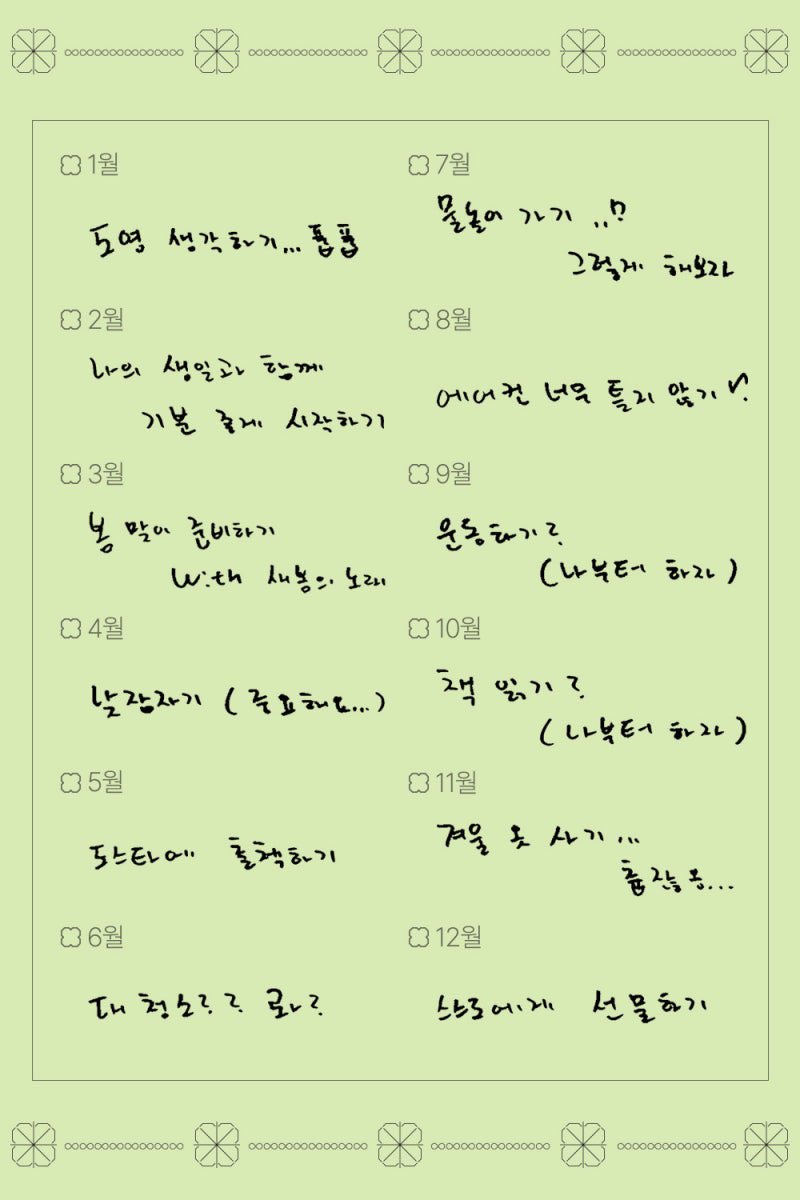 1월
도영 생각하기... 풉풉
2월
나의 생일과 함께
기분 좋게 시작하기
3월
봄 맞이 준비하기
With 새봄의 노래
4월
낮잠자기 (중요해요...)
5월
도스타에 출첵하기
6월
대청소? ?
7월
물놀이 가기 ..!?
그렇게 해보라
8월
에어컨 너무 틀지 않기
9월
운동하기?
(나부터 하자)
10월
책 읽기?
(나부터 하자)
11월
겨울 옷 사기 ...
12월
스스로에게 선물하기